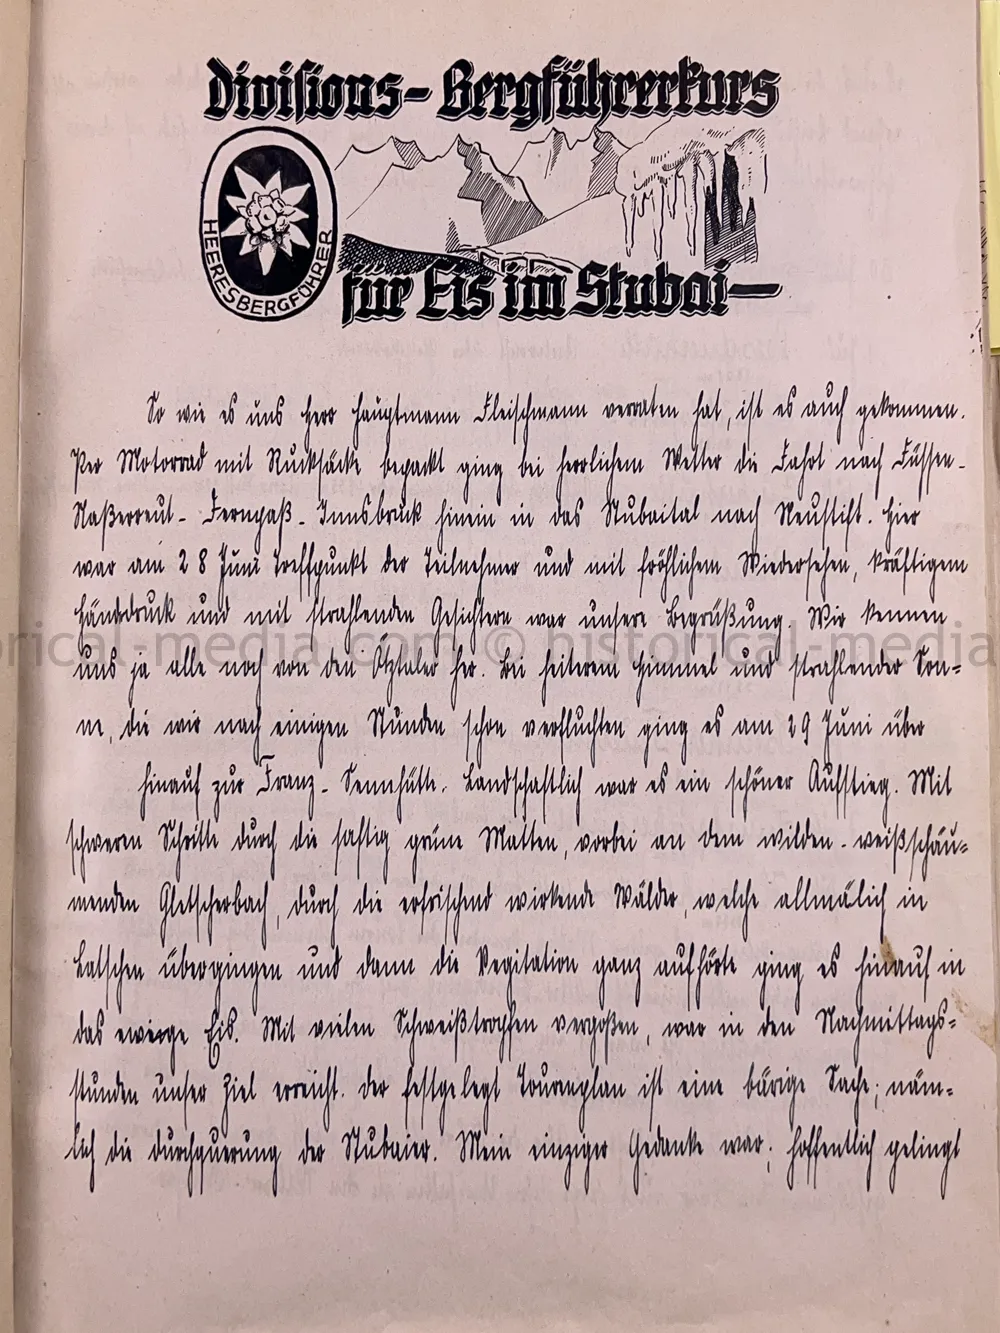 Divisions- Bergführerkurs
HEERESBERGFÜHRER
für Eis im Stubai-
So wie es uns Herr Hauptmann Fleischmann verraten hat, ist es auch gekommen.
Per Motorrad mit Rucksäcke bepackt ging bei herrlichem Wetter die Fahrt nach Füssen-
Naßerreut- Fernpaß- Innsbruck hinein in das Stubaital nach Neustift. Hier
war am 28 Juni Treffpunkt der Teilnehmer und mit fröhlichem Wiedersehen, kräftigem
Händdruck und mit strahlenden Gesichtern war unsere Begrüßung. Wir kennen
uns ja alle noch von den Ötztaler her. Bei heiterem Himmel und strahlender Son=
ne, die wir nach einigen Stunden schon verfluchten ging es am 29 Juni über
hinauf zur Franz- Sennhütte. Landschaftlich war es ein schöner Aufstieg. Mit
schweren Schritte durch die saftig grüne Matten, vorbei an dem wilden- weißschäu=
menden Gletscherbach, durch die erfrischend wirkende Wälder, welche allmälich in
Latschen übergingen und dann die Vegitation ganz aufhörte ging es hinauf in
das eweige Eis. Mit vielen Schweißtropfen vergoßen, war in den Nachmittags=
stunden unser Ziel erreicht. Der festgelegt Tourenplan ist eine bärige Sache; näm=
lich die durchquerung der Stubaier. Mein einziger Gedanke war; hoffentlich gelingt
historical-media.com © historical-media